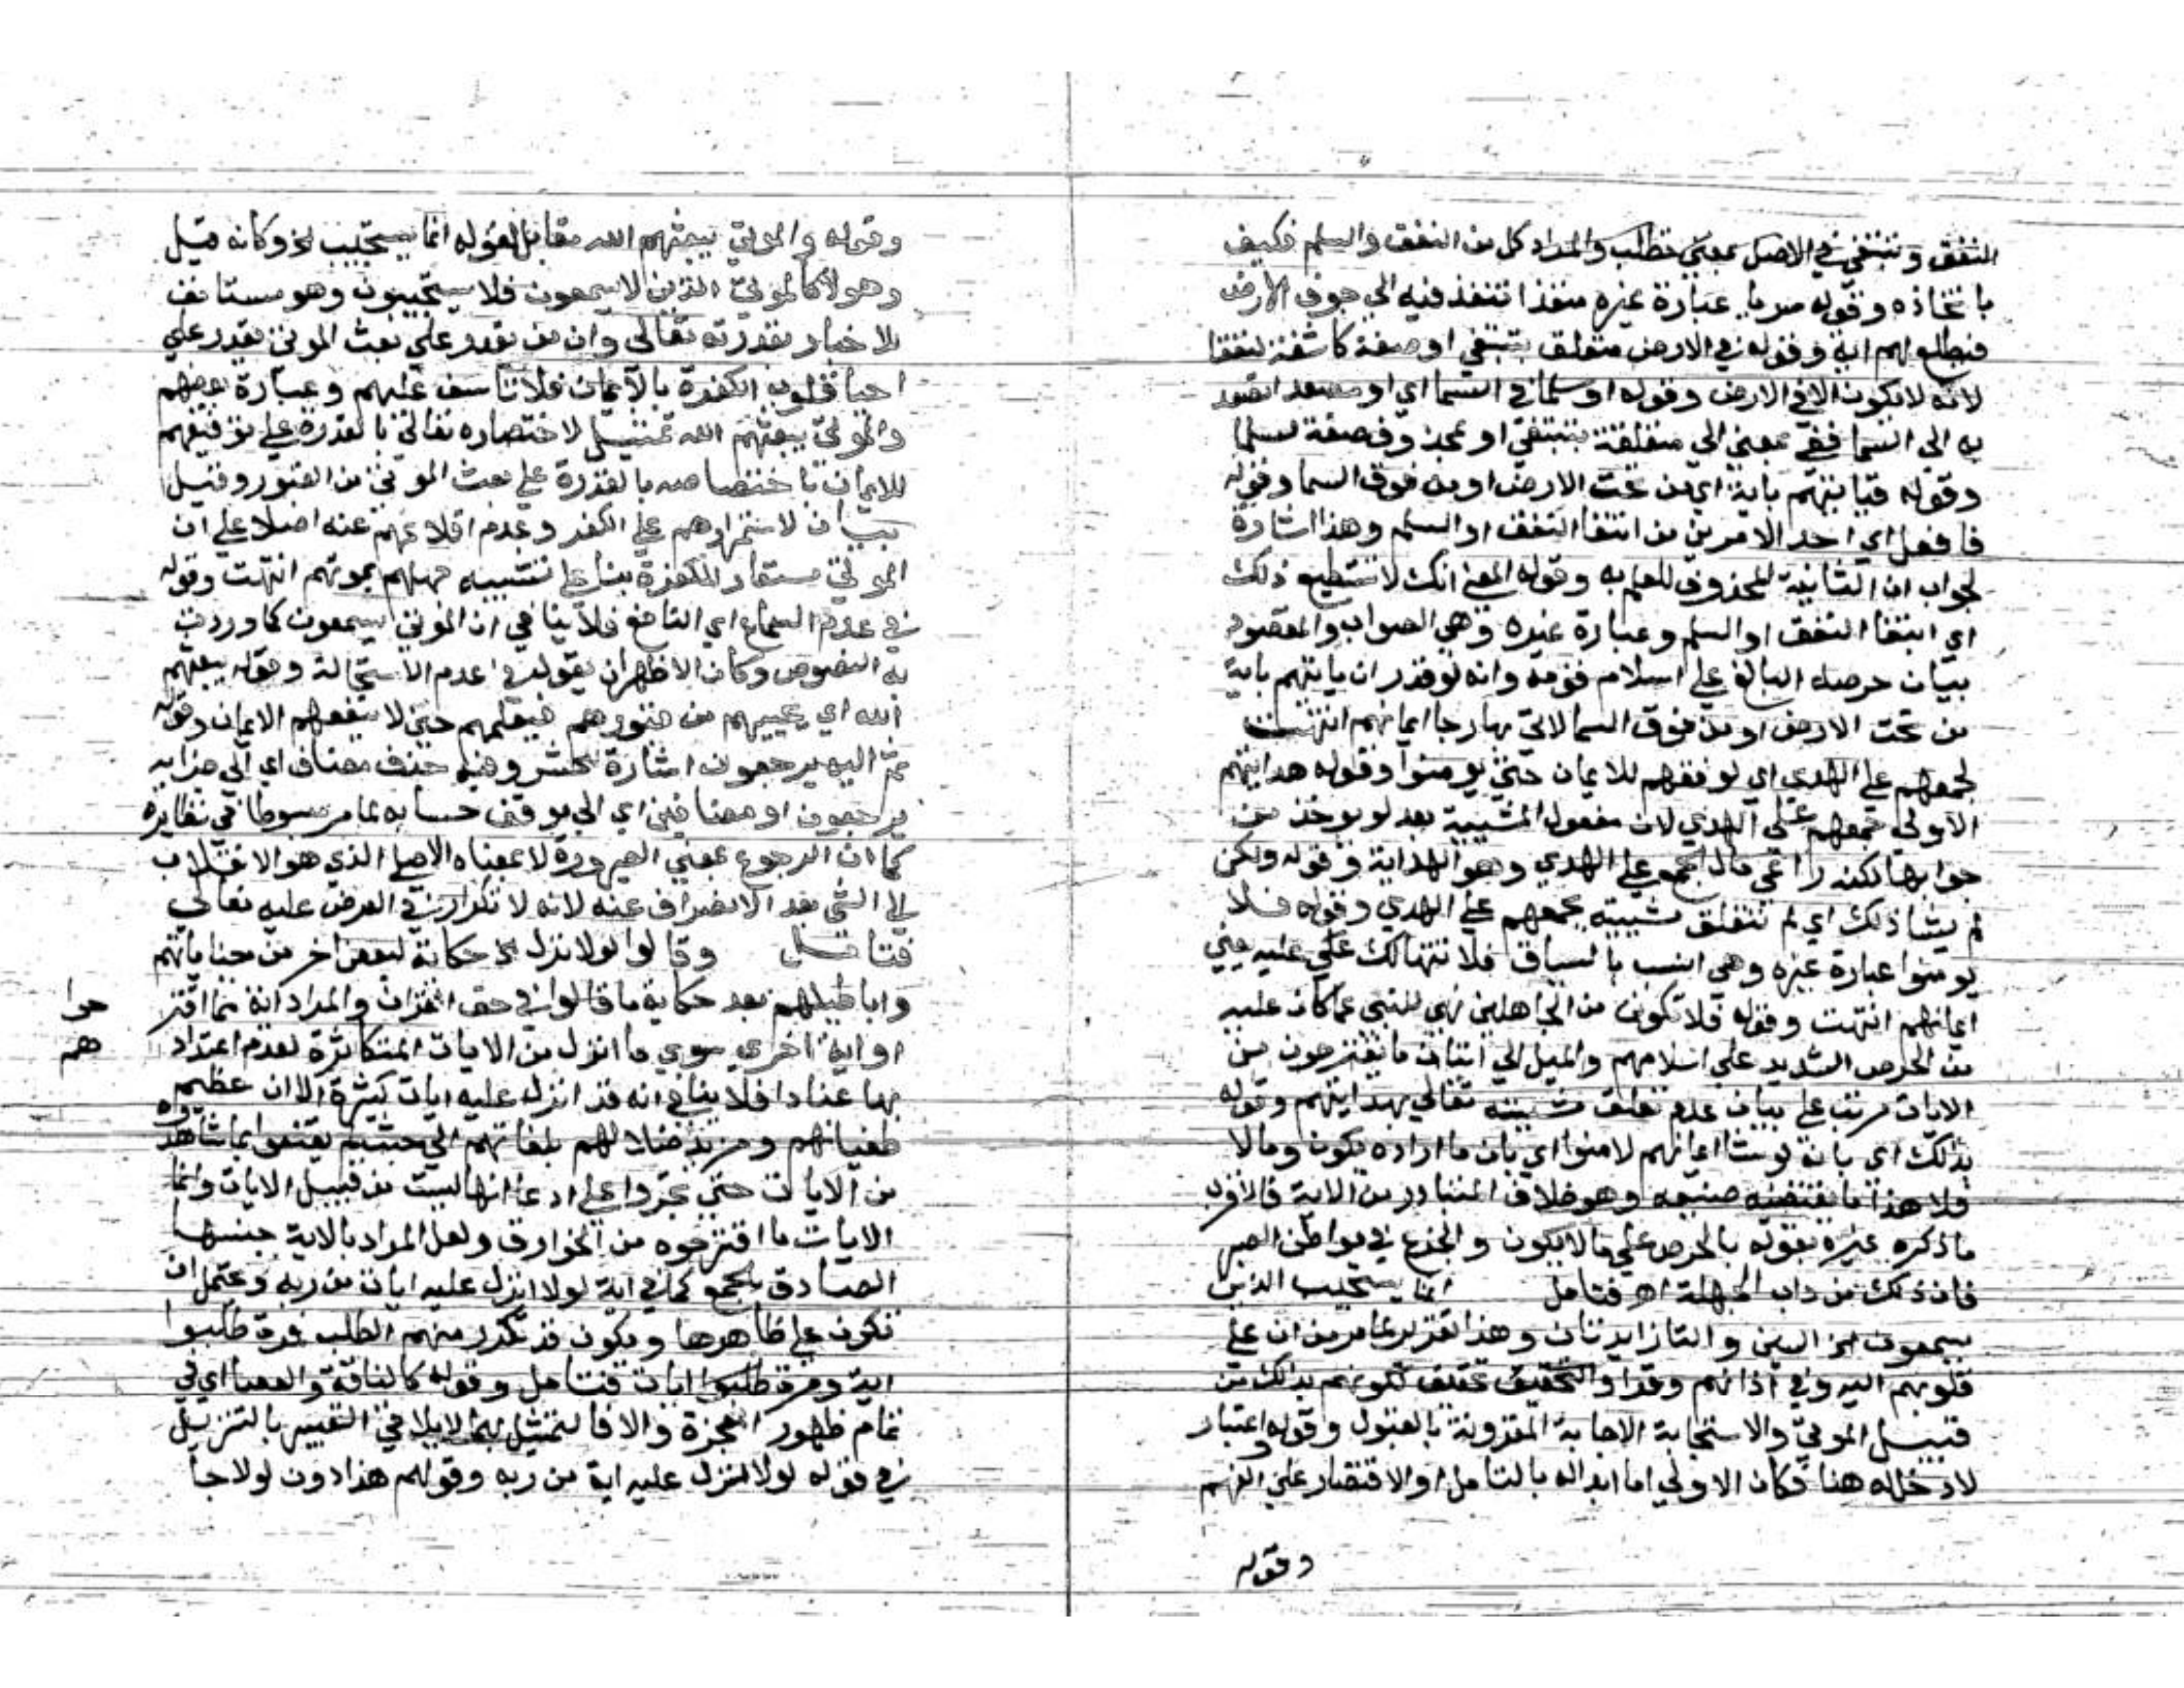 النفق وتبتغي في الاصل بمعني تطلب والمراد كل من النفق والسلم فكيف
باتخاذه وقوله سربا عبارة غيره منفذا تنفذ فيه الي جوف الارض
فتطلع لهم اية وقوله في الارض متعلق بتبتغي او صفة كاشفة لنفقا
لانه لا يكون الا في الارض وقوله او سلما في السما اي او مصعد اتصعد
به الي السما ففي بمعني الي متعلقة بتبتغي او بمحذوف صفة لسلما
وقوله فتاتيهم باية اي من تحت الارض او من فوق السما وقوله
فافعل اي احد الامرين من ابتغا النفق او السلم وهذا اشارة
لجواب ان الثانية المحذوف للعلم به وقوله المعني انك لا تستطيع ذلك
اي ابتغا النفق او السلم وعبارة غيره وهي الصواب والمقصود
بيان حرصه البالغ علي اسلام قومه وانه لو قدر ان ياتيهم باية
من تحت الارض او من فوق السما لاتي بها رجا ايمانهم انتهت
لجمعهم علي الهدي اي لو فقهم للايمان حتي يومنوا وقوله هدايتهم
الاولي جمعهم علي الهدي لان مفعول المشيية بعد لو يوخذ من
جوابها لكنه راعي مال الجمع علي الهدي وهو الهداية وقوله ولكن
لم يشا ذلك اي لم تتعلق مشييته بجمعهم علي الهدي وقوله فلا
يومنوا عبارة غيره وهي انسب بالسياق فلا تتهالك علي عليه يعني
ايمانهم انتهت وقوله فلا تكونن من الجاهلين نهي للنبي عما كان عليه
من الحرص الشديد علي اسلامهم والميل الي اتيان ما يقترحون من
الايات مرتب علي بيان عدم تعلق مشييته تعالي بهدايتهم وقوله
بذلك اي بانه لو شا ايمانهم لامنوا اي بان ما اراده يكون وما لا
فلا هذا ما يقتضيه صنيعه وهو خلاف المتبادر من الاية فالاقرب
ما ذكره غيره بقوله بالحرص علي ما لا يكون والجزع في مواطن الصبر
فان ذلك من داب الجهلة اه فتامل انما يستجيب الذين
يسمعون الخ السين والتا زايدتان وهذا تقرير لما مر من ان علي
قلوبهم اكنة وفي اذانهم وقرا والتحقيق تحقيق لكونهم بذلك من
قبيل الموتي والاستجابة الاجابة المقرونة بالقبول وقوله واعتبار
لا دخل له هنا فكان الاولي اما ابداله بالتامل او الاقتصار علي الفهم
وقوله
وقوله والموتي يبعثهم الله مقابل لقوله انما يستجيب الخ وكانه قيل
وهولا كالموتي الذين لا يسمعون فلا يستجيبون وهو مستانف
للاخبار بقدرته تعالي وان من يقدر علي بعث الموتي يقدر علي
احيا قلوب الكفرة بالايمان فلا تتاسف عليهم وعبارة بعضهم
والموتي يبعثهم الله تمثيل لاختصاره تعالي بالقدرة علي توفيقهم
للايمان باختصاصه بالقدرة علي بعث الموتي من القبور وقيل
بيان لاستمرارهم علي الكفر وعدم اقلاعهم عنه اصلا علي ان
الموتي مستعار للكفرة بنا علي تشبيه جهلهم بموتهم انتهت وقوله
في عدم السماع اي النافع فلا ينافي ان الموتي يسمعون كما وردت
به النصوص وكان الاظهر ان يقول في عدم الاستجالة وقوله يبعثهم
الله اي يحييهم من قبورهم فيعلمهم حتي لا ينفعهم الايمان وقوله
ثم اليه يرجعون اشارة للحشر وفيه حذف مضاف اي الي جزايه
يرجعون او مضافين اي الي موقف حسابه لما مر مبسوطا في نظايره
كما ان الرجوع بمعني الصيرورة لا بمعناه الاصلي الذي هو الانقلاب
الي الشي بعد الانصراف عنه لانه لا تكرار في العرض عليه تعالي
فتامل وقالوا لولا نزل الخ حكاية لبعض اخر من جناياتهم
واباطيلهم بعد حكاية ما قالوا في حق القران والمراد انه مما اقتر حوا
او اية اخري سوي ما انزل من الايات المتكاثرة لعدم اعتداد هم
بها عنادا فلا ينافي انه قد انزل عليه ايات كثيرة الا ان عظيم
طغيانهم ومزيد ضلالهم بلغا بهم الي حيث لم يقنعوا بما شاهدوه
من الايات حتي تجروا علي ادعا انها ليست من قبيل الايات وانما
الايات ما اقترحوه من الخوارق ولعل المراد بالاية جنسها
الصادق بالجمع كما في اية لولا انزل عليه ايات من ربه ويحتمل ان
تكون علي ظاهرها ويكون قد تكرر منهم الطلب فمرة طلبوا
اية ومرة طلبوا ايات فتامل وقوله كالناقة والعصا اي في
تمام ظهور المعجزة والا فالتمثيل بهما لا يلاقي التعبير بالتنزيل
في قوله لولا نزل عليه اية من ربه وقولهم هذا دون لولا جا